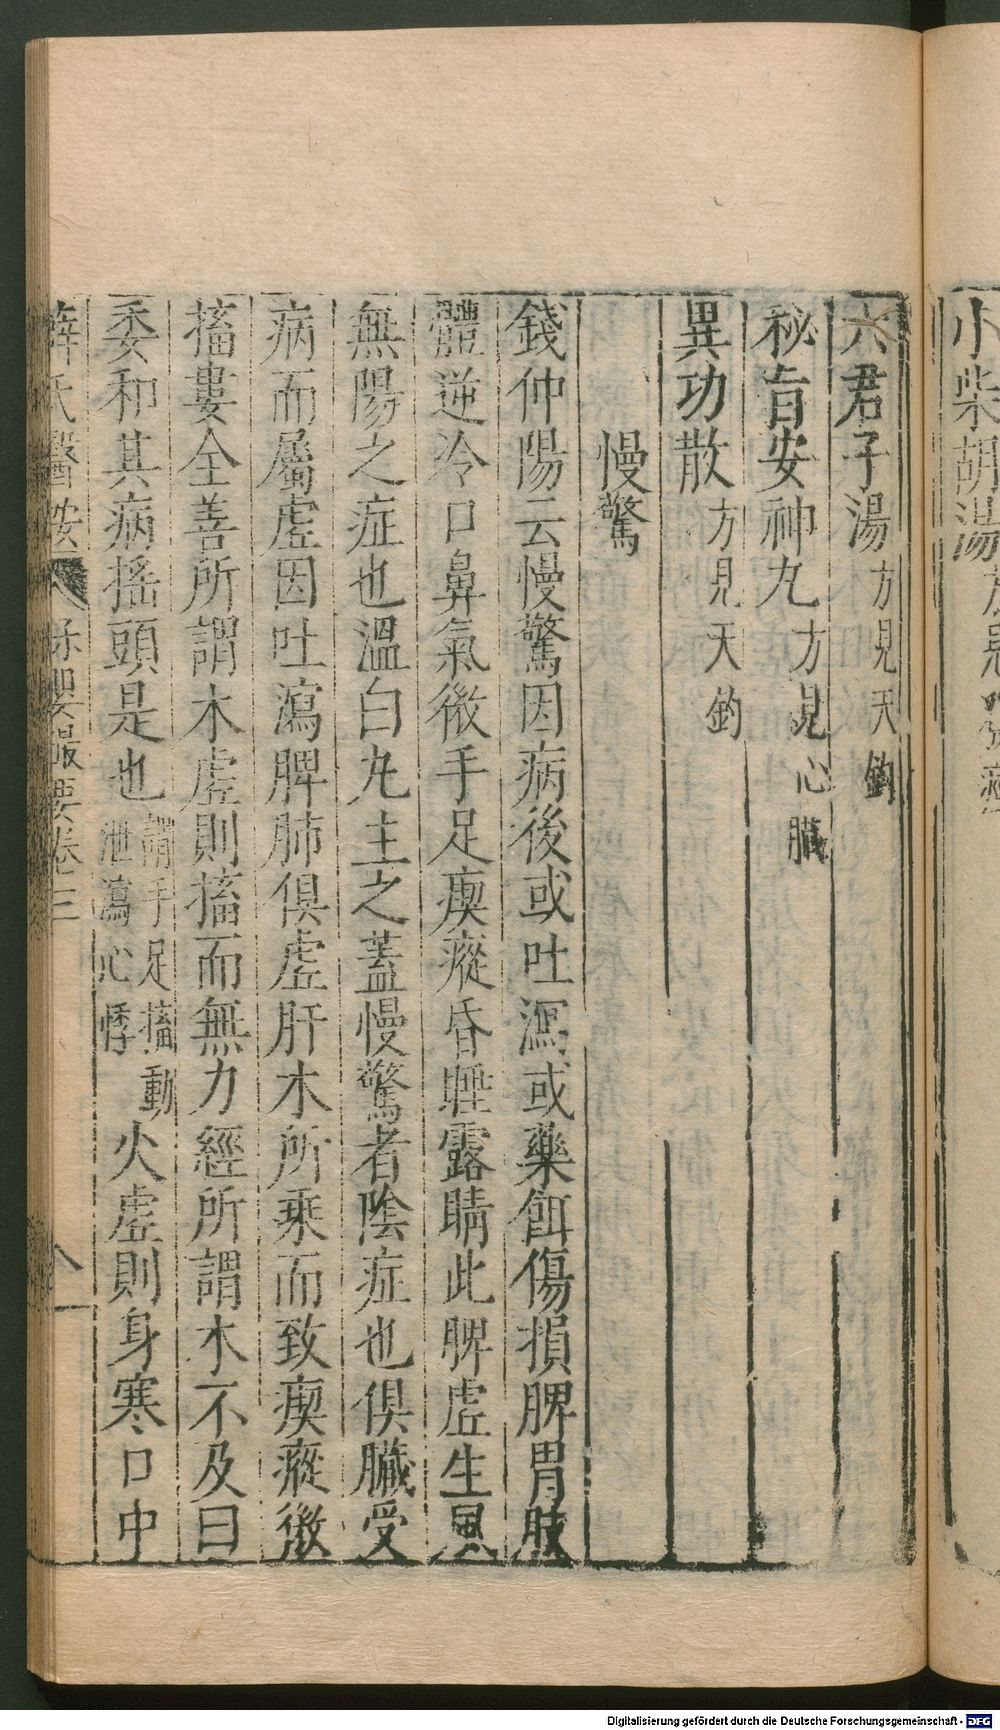 小柴胡湯
六君子湯方見天釣
秘旨安神丸方見心臓
異功散方見天釣
慢驚
錢仲陽云慢驚因病後或吐瀉或藥餌傷損脾胃肢
體逆冷口鼻氣微手足瘈瘲昏睡露睛此脾虛生風
無陽之症也溫白丸主之蓋慢驚者陰症也俱臟受
病而屬虛因吐瀉脾肺俱虛肝木所乘而致瘈瘲微
搐婁全善所謂木虛則搐而無力經所謂木不及曰
委和其病搖頭是也謂手足搐動泄瀉心悸火虛則身寒口中
薛氏醫按 保嬰撮要卷三 八
Digitalisierung gefördert durch die Deutsche Forschungsgemeinschaft - DFG